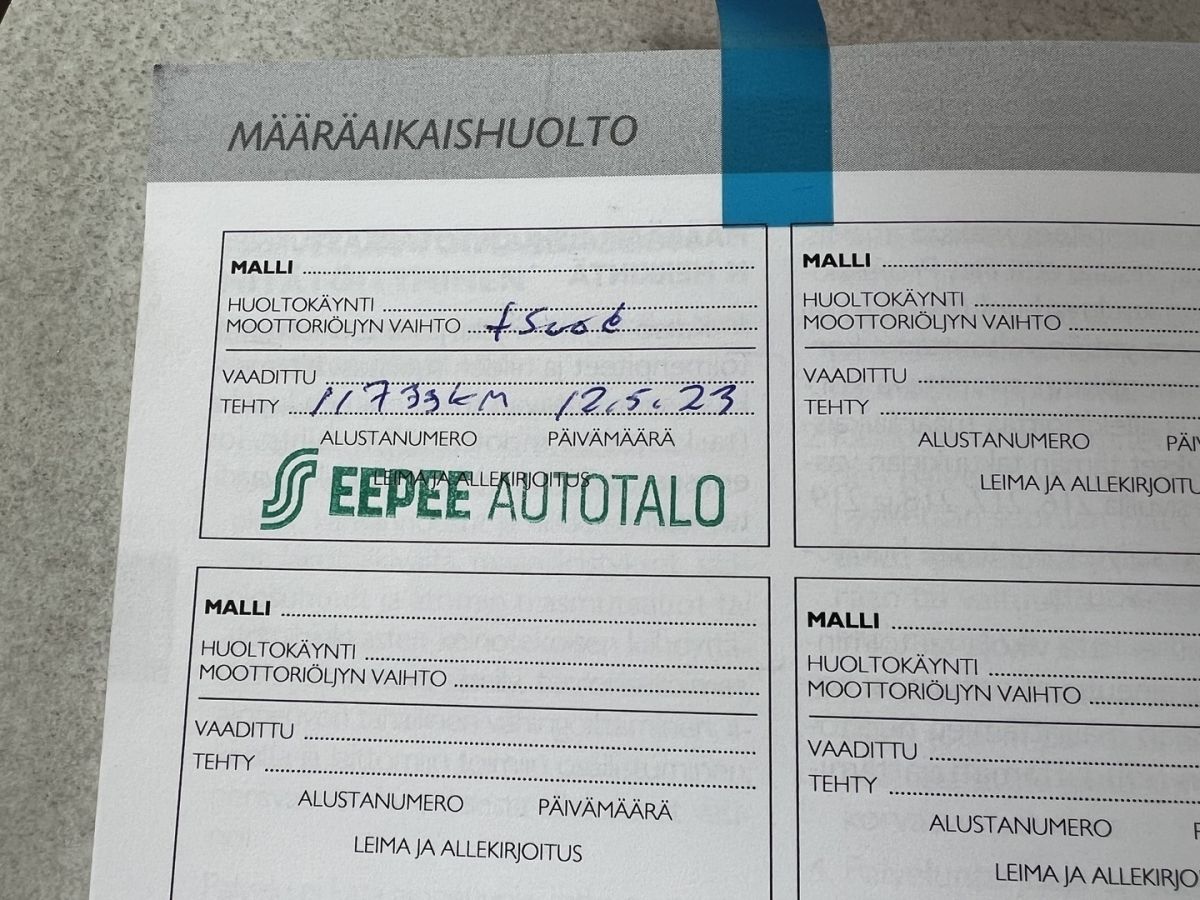 MÄÄRÄAIKAISHUOLTO
MALLI
HUOLTOKÄYNTI
MOOTTORIÖLJYN VAIHTO
VAADITTU
TEHTY 11733km 12.5.23
ALUSTANUMERO PÄIVÄMÄÄRÄ
LEIMA JA ALLEKIRJOITUS
EEPEE AUTOTALO
MALLI
HUOLTOKÄYNTI
MOOTTORIÖLJYN VAIHTO
VAADITTU
TEHTY
ALUSTANUMERO
LEIMA JA ALLEKIRJOITU
MALLI
HUOLTOKÄYNTI
MOOTTORIÖLJYN VAIHTO
VAADITTU
TEHTY
ALUSTANUMERO PÄIVÄMÄÄRÄ
LEIMA JA ALLEKIRJOITUS
MALLI
HUOLTOKÄYNTI
MOOTTORIÖLJYN VAIHTO
VAADITTU
TEHTY
ALUSTANUMERO
LEIMA JA ALLEKIRJO